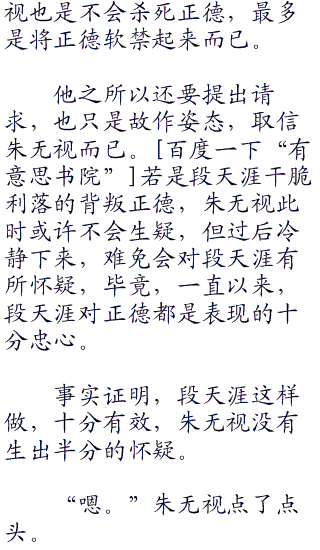 视也是不会杀死正德，最多
是将正德软禁起来而已。
他之所以还要提出请
求，也只是故作姿态，取信
朱无视而已。[百度一下“有
意思书院”]若是段天涯干脆
利落的背叛正德，朱无视此
时或许不会生疑，但过后冷
静下来，难免会对段天涯有
所怀疑，毕竟，一直以来，
段天涯对正德都是表现的十
分忠心。
事实证明，段天涯这样
做，十分有效，朱无视没有
生出半分的怀疑。
“嗯。”朱无视点了点
头。